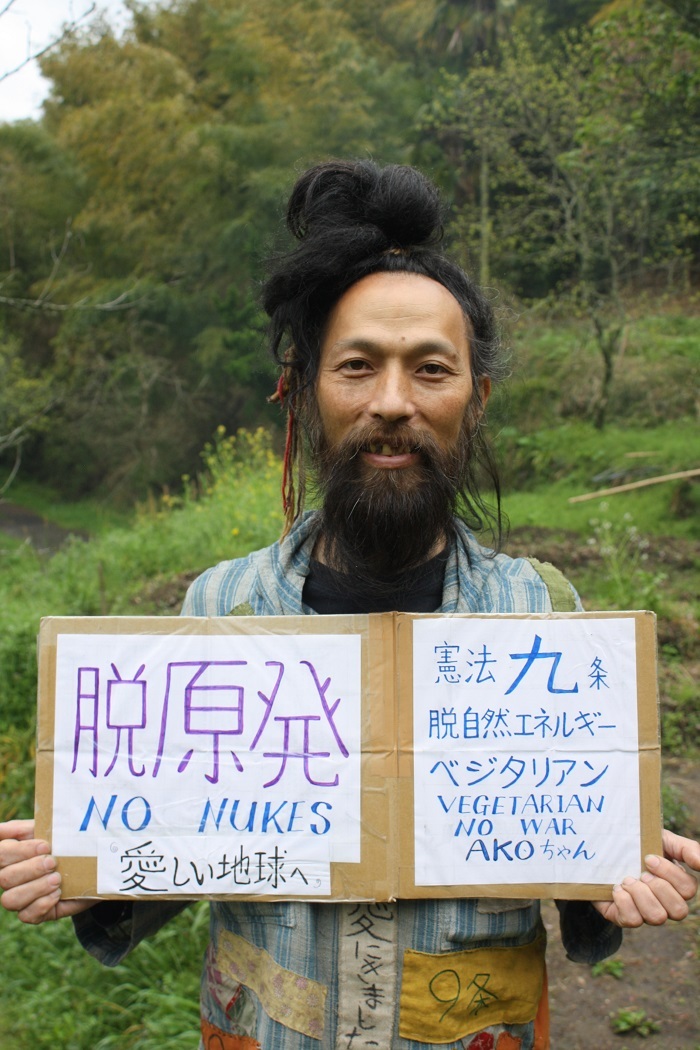 脱原発
NO NUKES
愛しい地球へ。
憲法九条
脱自然エネルギー
ベジタリアン
VEGETARIAN
NO WAR
AKOちゃん
愛にきました
9条